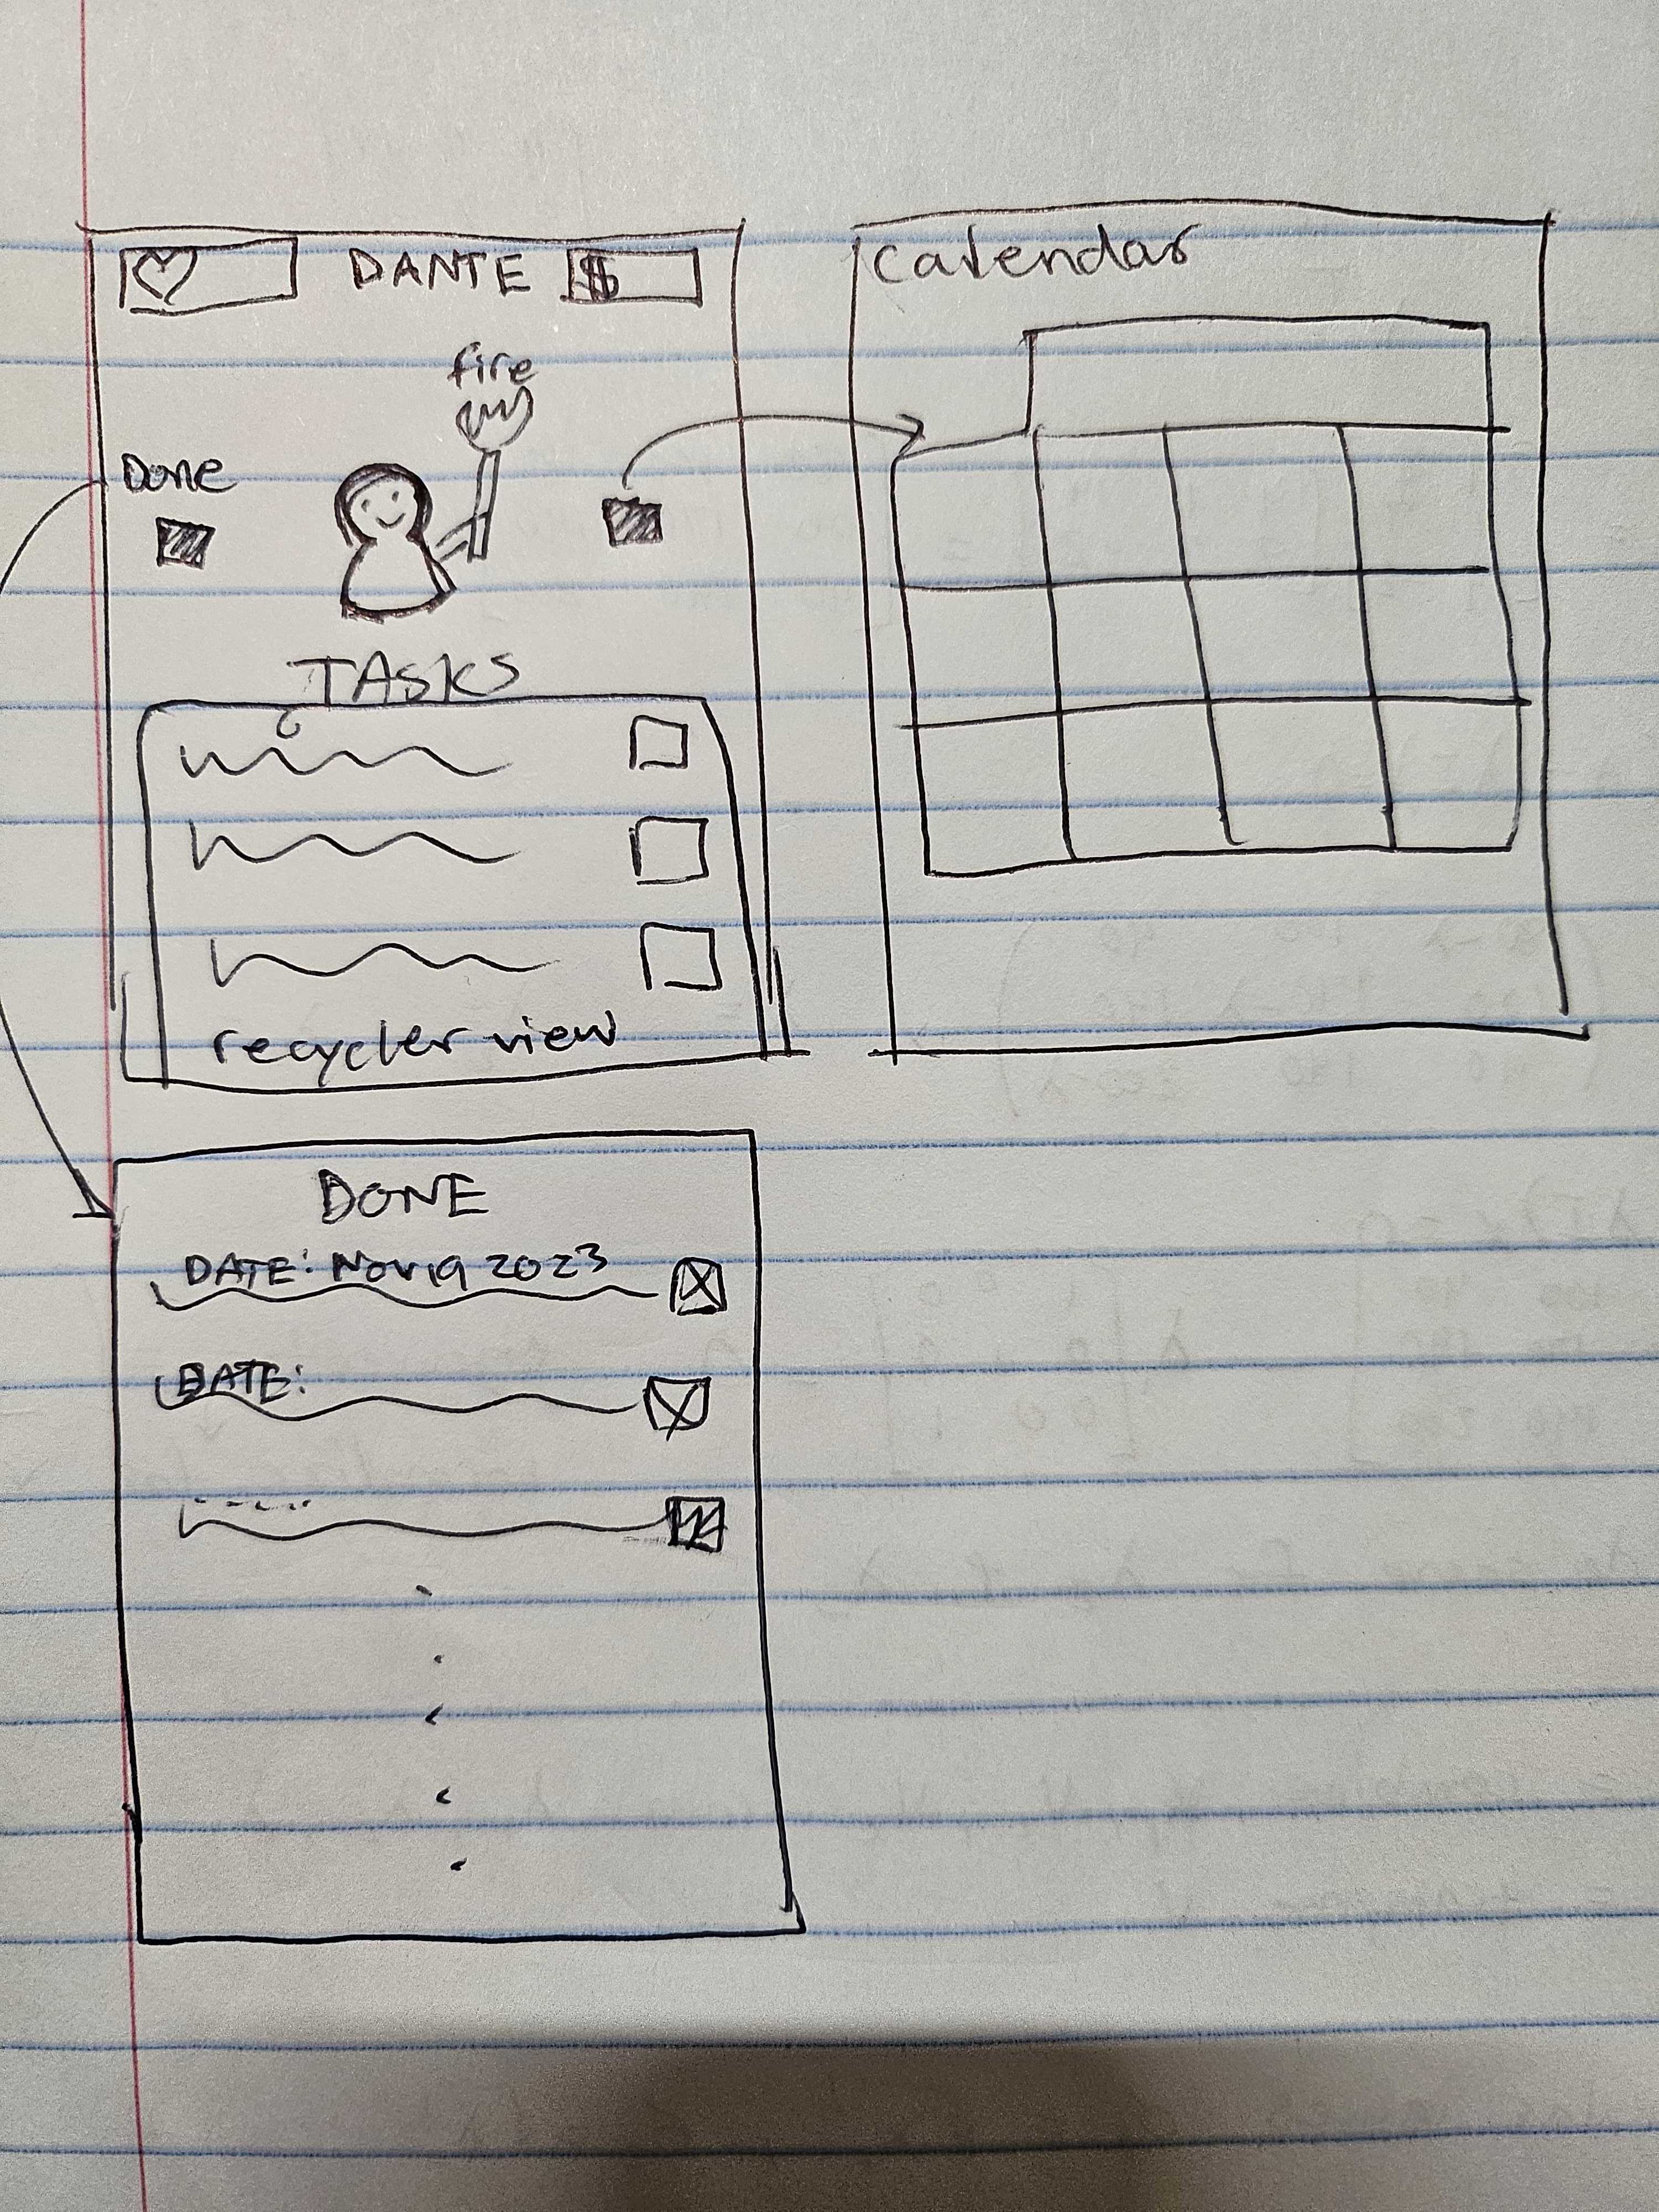 DANTE $
fire
Done
TASKS
recycler view
Calendar
DONE
DATE: Nov 19 2023
DATE: